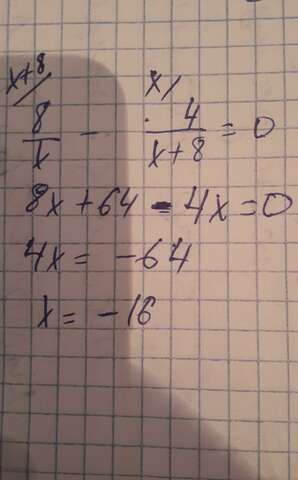 x+8/ x/
8/x - 4/x+8 = 0
8x+64 - 4x = 0
4x = -64
x = -16